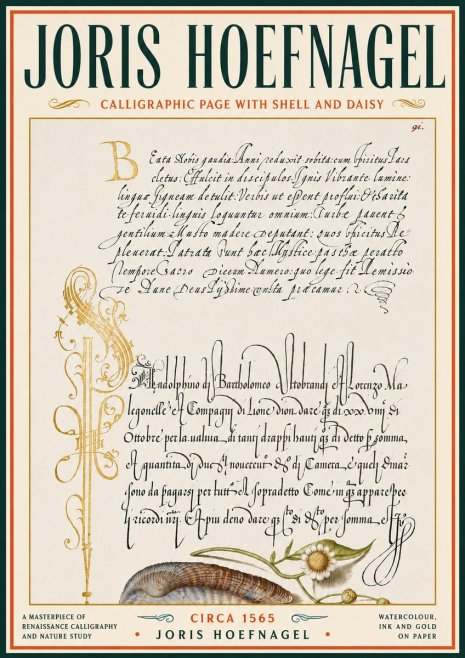 JORIS HOEFNAGEL
CALLIGRAPHIC PAGE WITH SHELL AND DAISY
91.
Beata nobis gaudia: Anni reduxit orbita: cum spiritus Para
cletus: Effulcit in discipulos: Ignis Vibrante lumine:
lingua figneam detulit: Verbis ut essent proflui: & Charita
te feruidi: linguis loquuntur omnium: Turbæ pauent
gentilium: Musto madere deputant: quos spiritus Re-
pleuerat: Patrata sunt hæc Mystice: paschæ peracto
tempore: Sacro dierum Numero: quo lege fit Remissio
Nunc Deus piissime præcamur
di Bartholomeo Altobrandj et Lorenzo Ma
legonelle et Compagnj di Lione dion dare di xxviiij di
Ottobre per la ualuta di tantj drappi hauuti di detto somma
quantita di Duc nouecent di Camera e quelj dinar
sono da pagarsj per tutto il sopradetto Come in appare per
ricordi Et piu deno dare per somma
A MASTERPIECE OF
RENAISSANCE CALLIGRAPHY
AND NATURE STUDY
CIRCA 1565
• JORIS HOEFNAGEL •
WATERCOLOUR,
INK AND GOLD
ON PAPER